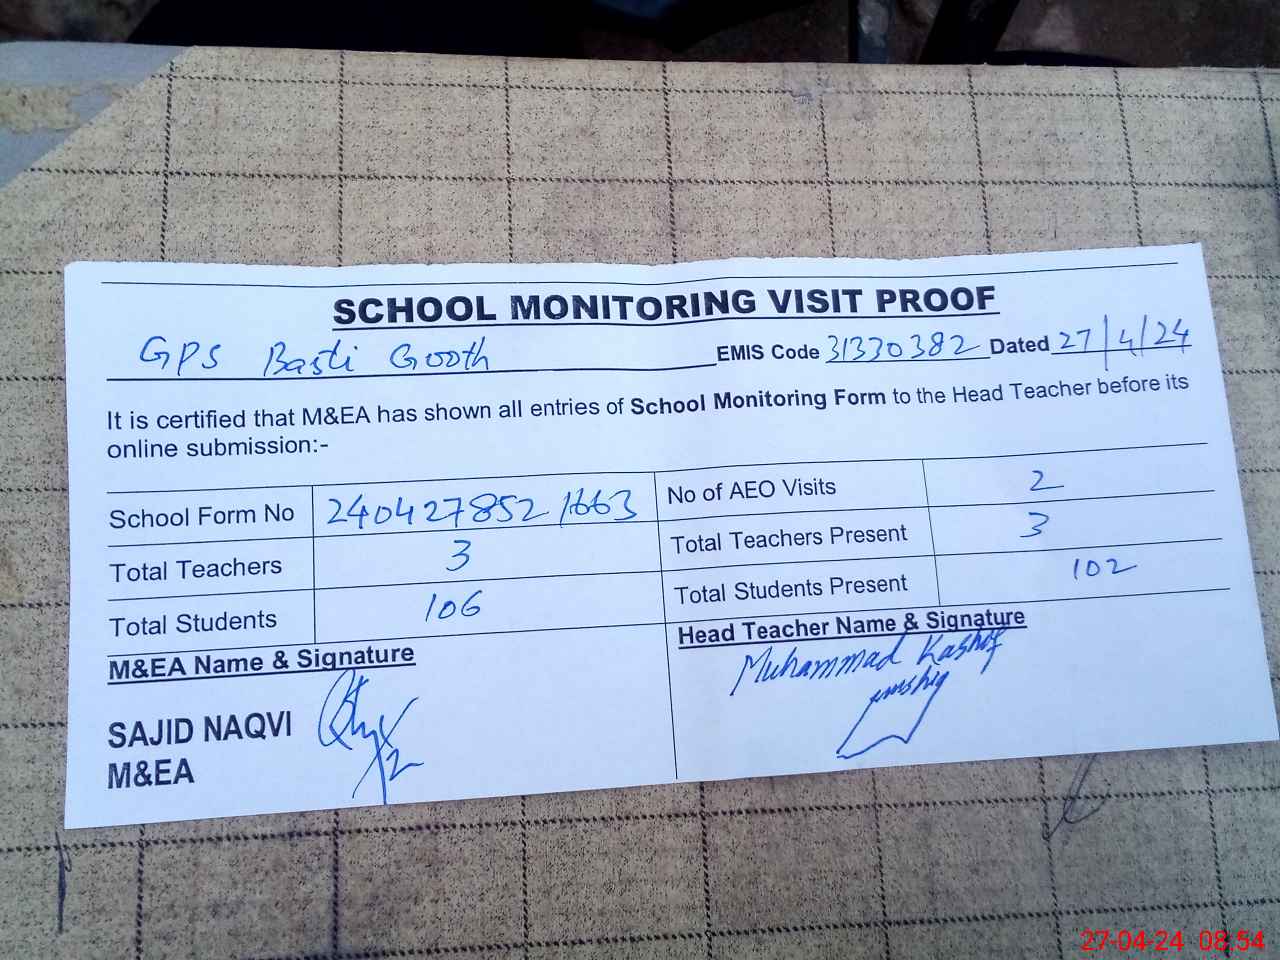 SCHOOL MONITORING VISIT PROOF
GPS Basti Gooth EMIS Code 31330382 Dated 27/4/24
It is certified that M&EA has shown all entries of School Monitoring Form to the Head Teacher before its
online submission:-
School Form No 2404278521663 No of AEO Visits 2
Total Teachers 3 Total Teachers Present 3
Total Students 106 Total Students Present 102
M&EA Name & Signature Head Teacher Name & Signature
Muhammad Kashif
SAJID NAQVI
M&EA
27-04-24 08:54